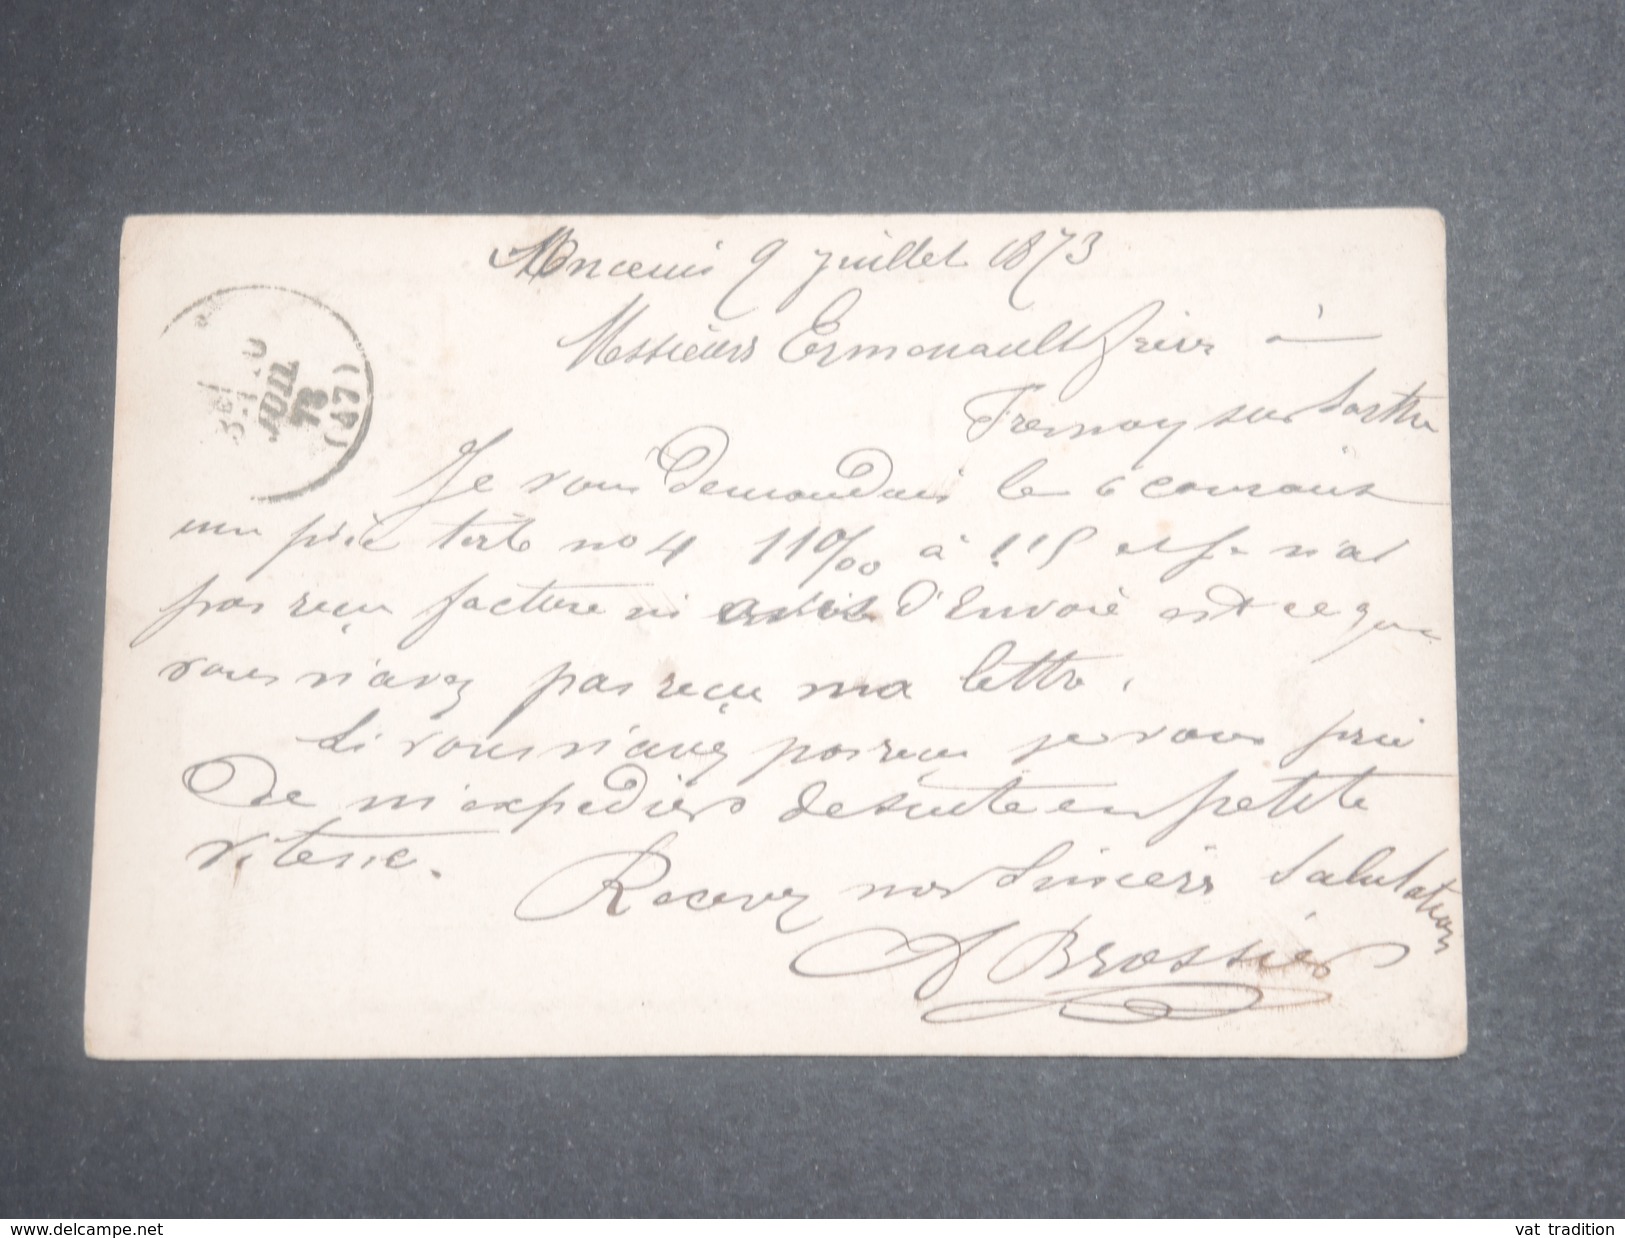 9 juillet 1873
Messieurs Ermenault frères à
Fresnay sur Sarthe
Je vous demandais le 6 courant
une pièce toile no 4 110/00 à 1.15 et je n'ai
pas reçu facture ni avis d'Envoie est ce que
vous n'avez pas reçu ma lettre.
Si vous n'avez pas reçu je vous prie
De m'expedier de suite en petite
vitesse.
Recevez nos Sincères Salutations
A Brossier
10
JUIL
73
(47)
www.delcampe.net
vat tradition